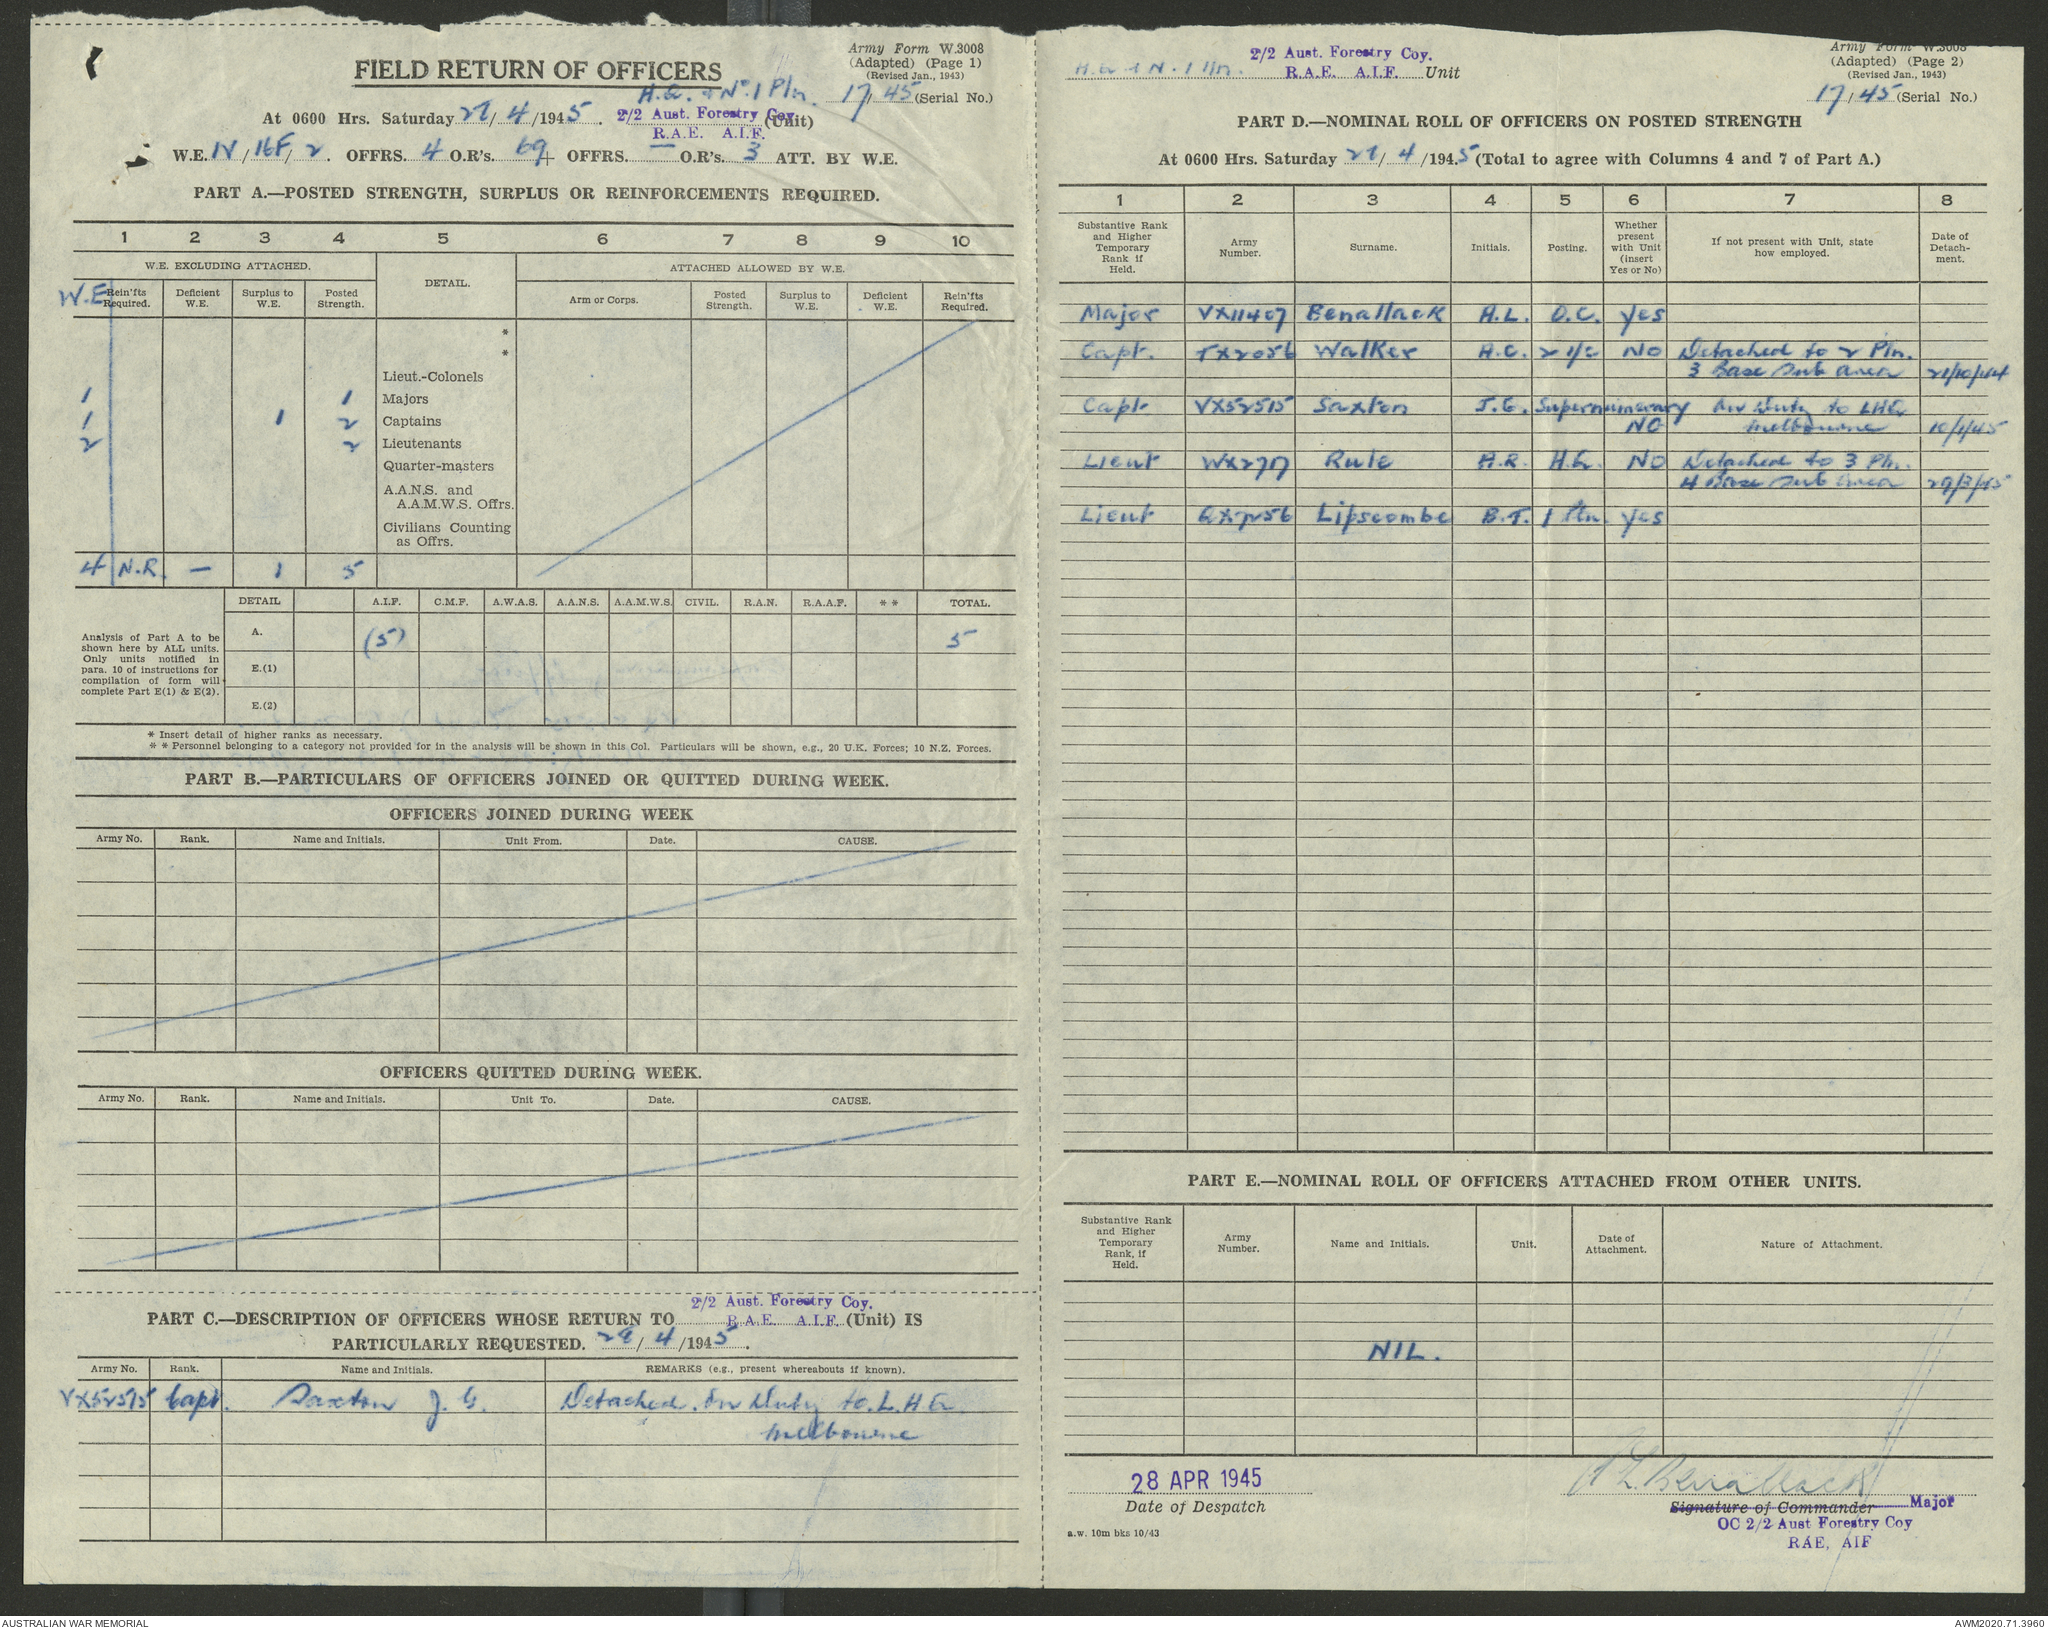 Army Form W.3008
(Adapted) (Page 1)
(Revised Jan., 1943)
FIELD RETURN OF OFFICERS
H.Q. + No. 1 Pln. 17/45 (Serial No.)
At 0600 Hrs. Saturday /4/1945. 2/2 Aust. Forestry Coy. (Unit)
R.A.E. A.I.F.
W.E. IV/16F/2. OFFRS. 4 O.R's. 69 + OFFRS. — O.R's. 3 ATT. BY W.E.
PART A.—POSTED STRENGTH, SURPLUS OR REINFORCEMENTS REQUIRED.
1 2 3 4 5 6 7 8 9 10
W.E. EXCLUDING ATTACHED. DETAIL. ATTACHED ALLOWED BY W.E.
W.E. Rein'fts Required. Deficient W.E. Surplus to W.E. Posted Strength. Arm or Corps. Posted Strength. Surplus to W.E. Deficient W.E. Rein'fts Required.
*
*
Lieut.-Colonels
1 1 Majors
1 1 2 Captains
2 2 Lieutenants
Quarter-masters
A.A.N.S. and
A.A.M.W.S. Offrs.
Civilians Counting
as Offrs.
4 N.R. — 1 5
DETAIL A.I.F. C.M.F. A.W.A.S. A.A.N.S. A.A.M.W.S. CIVIL. R.A.N. R.A.A.F. * * TOTAL.
Analysis of Part A to be
shown here by ALL units.
Only units notified in
para. 10 of instructions for
compilation of form will
complete Part E(1) & E(2).
A. (5) 5
E.(1)
E.(2)
* Insert detail of higher ranks as necessary.
* * Personnel belonging to a category not provided for in the analysis will be shown in this Col. Particulars will be shown, e.g., 20 U.K. Forces; 10 N.Z. Forces.
PART B.—PARTICULARS OF OFFICERS JOINED OR QUITTED DURING WEEK.
OFFICERS JOINED DURING WEEK
Army No. Rank. Name and Initials. Unit From. Date. CAUSE.
OFFICERS QUITTED DURING WEEK.
Army No. Rank. Name and Initials. Unit To. Date. CAUSE.
2/2 Aust. Forestry Coy.
PART C.—DESCRIPTION OF OFFICERS WHOSE RETURN TO R.A.E. A.I.F. (Unit) IS
PARTICULARLY REQUESTED. 28/4/1945.
Army No. Rank. Name and Initials. REMARKS (e.g., present whereabouts if known).
VX52515 Capt. Saxton J. G. Detached. On Duty to. L.H.Q.
Melbourne
Army Form W.3008
(Adapted) (Page 2)
(Revised Jan., 1943)
2/2 Aust. Forestry Coy.
H.Q. + No. 1 Pln. R.A.E. A.I.F. Unit
17/45 (Serial No.)
PART D.—NOMINAL ROLL OF OFFICERS ON POSTED STRENGTH
At 0600 Hrs. Saturday /4/1945 (Total to agree with Columns 4 and 7 of Part A.)
1 2 3 4 5 6 7 8
Substantive Rank and Higher Temporary Rank if Held. Army Number. Surname. Initials. Posting. Whether present with Unit (insert Yes or No) If not present with Unit, state how employed. Date of Detach-ment.
Major VX11407 Benallack A.L. O.C. Yes
Capt. TX2056 Walker A.C. 2 i/c NO Detached to 2 Pln.
3 Base Sub area 21/10/44
Capt VX52515 Saxton J.G. Supernumerary On Duty to LHQ
NO Melbourne 10/1/45
Lieut WX2717 Rule A.R. H.Q. NO Detached to 3 Pln.
4 Base Sub area 29/3/45
Lieut QX7256 Lipscombe B.T. 1 Pln. Yes
PART E.—NOMINAL ROLL OF OFFICERS ATTACHED FROM OTHER UNITS.
Substantive Rank and Higher Temporary Rank, if Held. Army Number. Name and Initials. Unit. Date of Attachment. Nature of Attachment.
NIL.
28 APR 1945
Date of Despatch
A L Benallack
Signature of Commander Major
OC 2/2 Aust Forestry Coy
RAE, AIF
a.w. 10m bks 10/43
AUSTRALIAN WAR MEMORIAL
AWM2020.71.3960